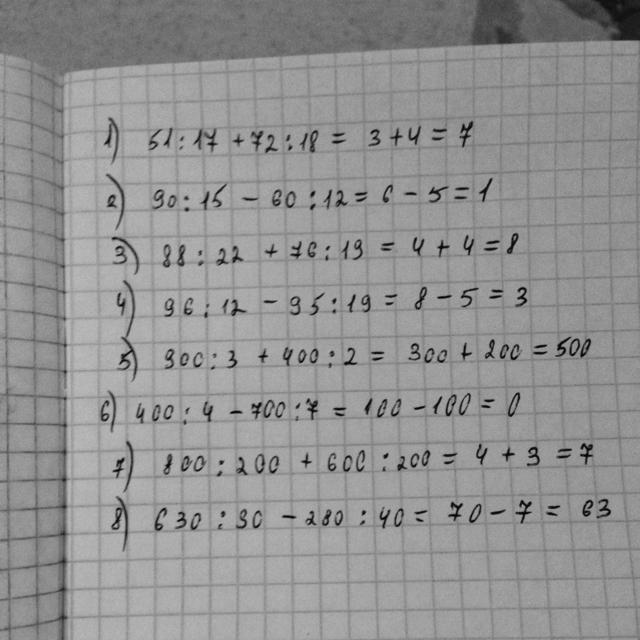 1) 51:17 + 72:18 = 3+4 = 7
2) 90:15 - 60:12 = 6 - 5 = 1
3) 88:22 + 76:19 = 4 + 4 = 8
4) 96:12 - 95:19 = 8 - 5 = 3
5) 900:3 + 400:2 = 300 + 200 = 500
6) 400:4 - 700:7 = 100 - 100 = 0
7) 800:200 + 600:200 = 4 + 3 = 7
8) 630:90 - 280:40 = 70 - 7 = 63